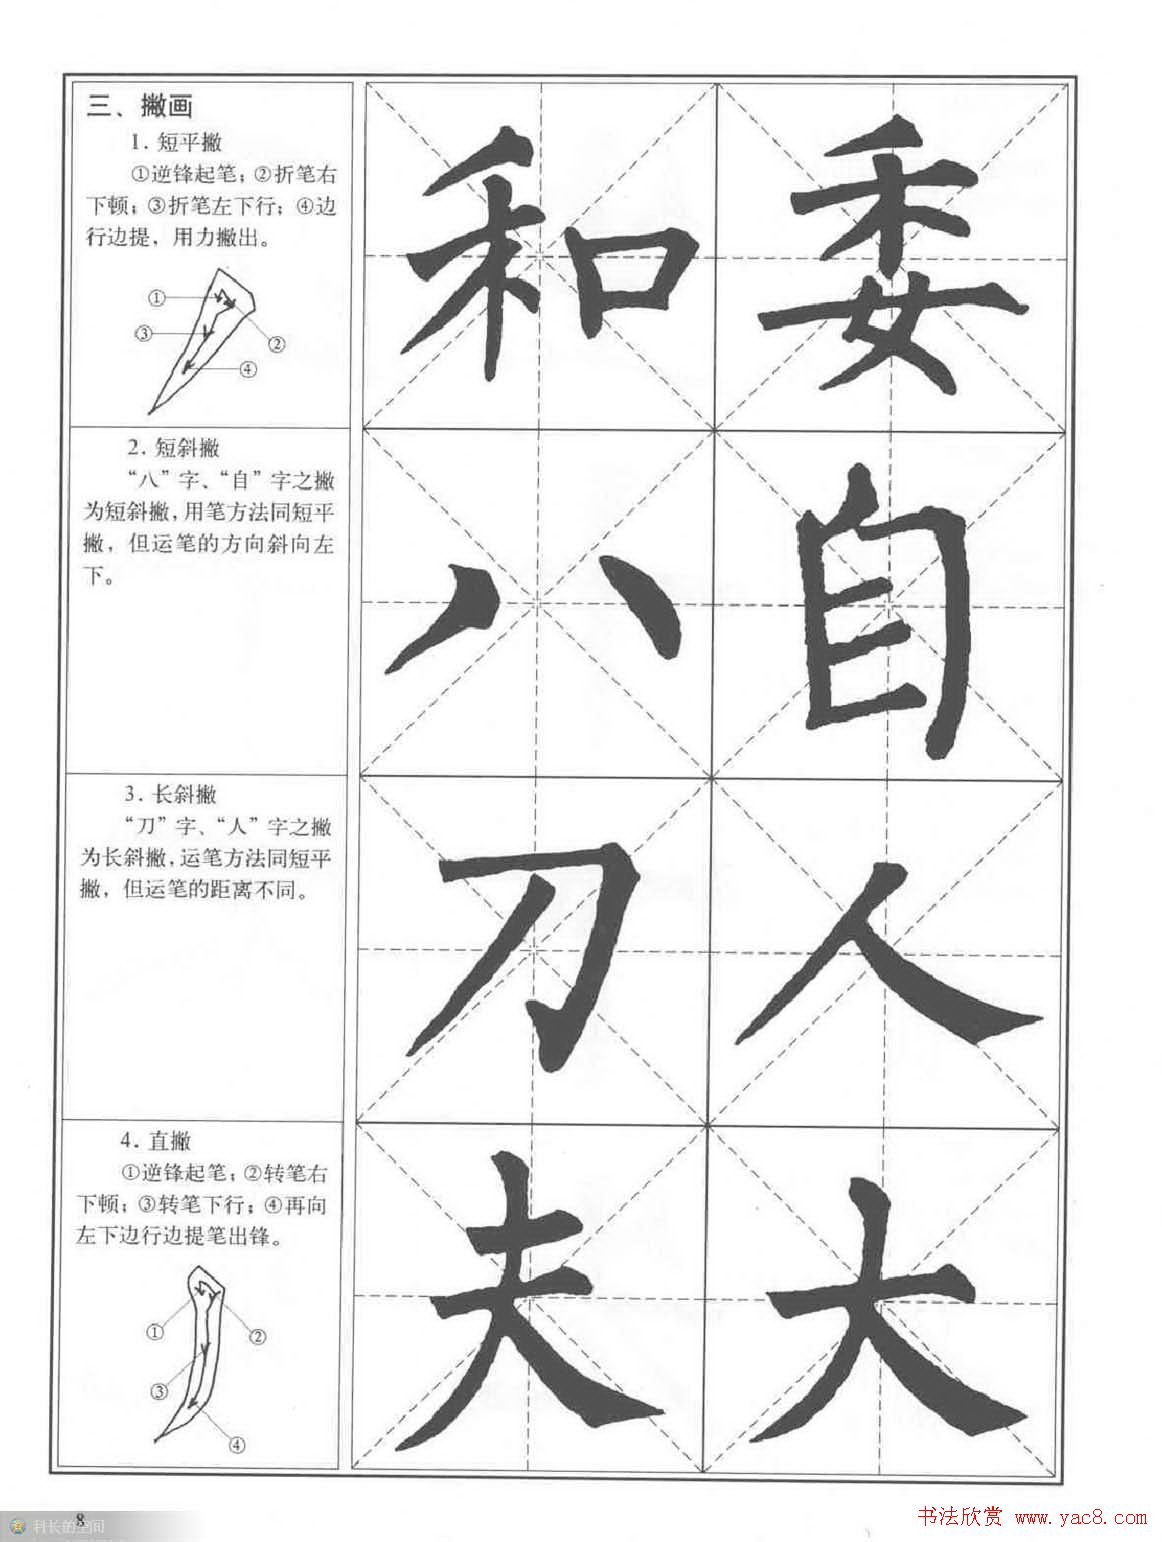 三、撇画
1. 短平撇
①逆锋起笔；②折笔右
下顿；③折笔左下行；④边
行边提，用力撇出。
①
③
②
④
和 委
2. 短斜撇
“八”字、“自”字之撇
为短斜撇，用笔方法同短平
撇，但运笔的方向斜向左
下。
八 自
3. 长斜撇
“刀”字、“人”字之撇
为长斜撇，运笔方法同短平
撇，但运笔的距离不同。
刀 人
4. 直撇
①逆锋起笔；②转笔右
下顿；③转笔下行；④再向
左下边行边提笔出锋。
①
②
③
④
夫 大
8
科长的空间
书法欣赏 www.yac8.com